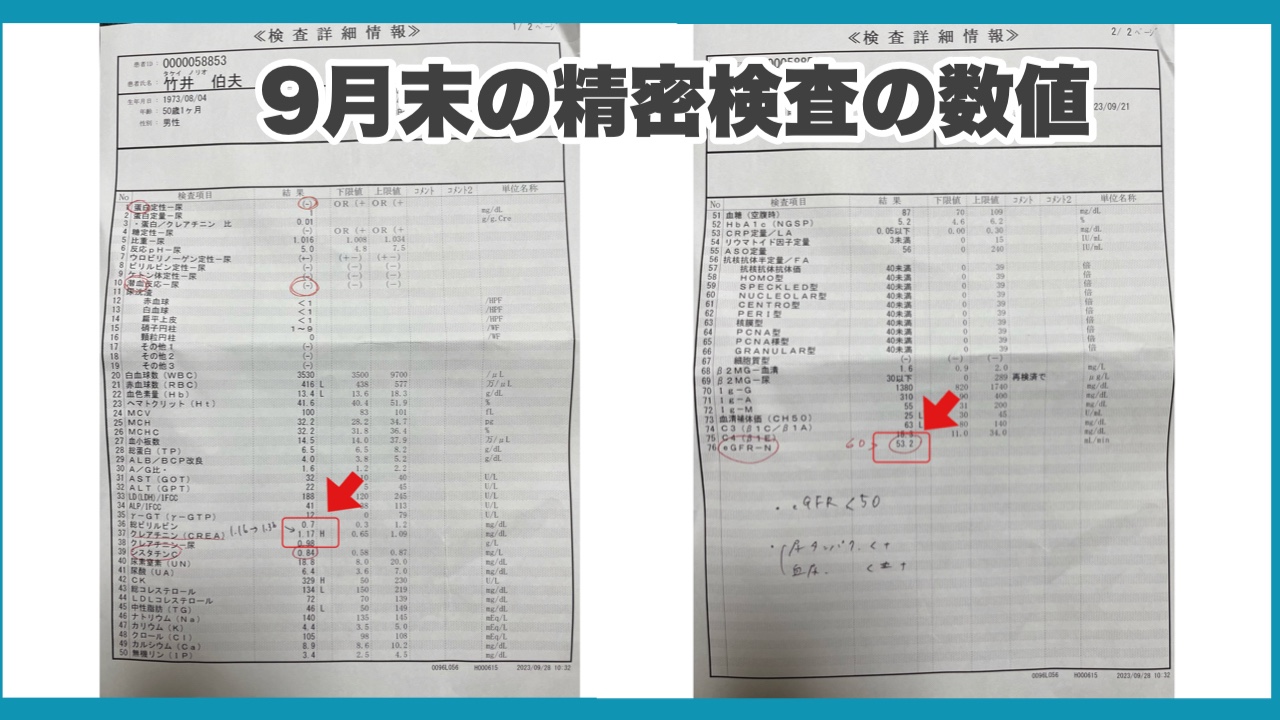 9月末の精密検査の数値
≪検査詳細情報≫
1/ 2ページ
患者ID: 0000058853
タケイ ノリオ
患者氏名: 竹井 伯夫
生年月日: 1973/08/04
年齢: 50歳1ヶ月
性別: 男性
No 検査項目 結果 下限値 上限値 コメント コメント2 単位名称
1 蛋白定性ー尿 (-) OR(+ OR(+
2 蛋白定量ー尿 1 mg/dL
3 ・蛋白/クレアチニン 比 0.01 g/g.Cre
4 糖定性ー尿 (-) OR(+ OR(+
5 比重ー尿 1.016 1.008 1.034
6 反応pHー尿 5.0 4.8 7.5
7 ウロビリノーゲン定性ー尿 (+-) (+-) (+-)
8 ビリルビン定性ー尿 (-) (-) (-)
9 ケトン体定性ー尿 (-) (-) (-)
10 潜血反応ー尿 (-) (-) (-)
11 尿沈渣
12 赤血球 <1 /HPF
13 白血球 <1 /HPF
14 扁平上皮 <1 /HPF
15 硝子円柱 1~9 /WF
16 顆粒円柱 0 /WF
17 その他1 (-)
18 その他2 (-)
19 その他3 (-)
20 白血球数(WBC) 3530 3500 9700 /μL
21 赤血球数(RBC) 416 L 438 577 万/μL
22 血色素量(Hb) 13.4 L 13.6 18.3 g/dL
23 ヘマトクリット(Ht) 41.6 40.4 51.9 %
24 MCV 100 83 101 fL
25 MCH 32.2 28.2 34.7 pg
26 MCHC 32.2 31.8 36.4 %
27 血小板数 14.5 14.0 37.9 万/μL
28 総蛋白(TP) 6.5 6.5 8.2 g/dL
29 ALB/BCP改良 4.0 3.8 5.2 g/dL
30 A/G比・ 1.6 1.2 2.2
31 AST(GOT) 32 40 U/L
32 ALT(GPT) 22 5 45 U/L
33 LD(LDH)/IFCC 188 120 245 U/L
34 ALP/IFCC 41 38 113 U/L
35 γーGT(γーGTP) 12 0 79 U/L
36 総ビリルビン 0.7 0.3 1.2 mg/dL
37 クレアチニン(CREA) 1.16→1.36 1.17 H 0.65 1.09 mg/dL
38 クレアチニンー尿 0.98 g/L
39 シスタチンC 0.84 0.58 0.87 mg/L
40 尿素窒素(UN) 18.8 8.0 20.0 mg/dL
41 尿酸(UA) 6.4 3.6 7.0 mg/dL
42 CK 329 H 50 230 U/L
43 総コレステロール 134 L 150 219 mg/dL
44 LDLコレステロール 72 70 139 mg/dL
45 中性脂肪(TG) 46 L 50 149 mg/dL
46 ナトリウム(Na) 140 135 145 mEq/L
47 カリウム(K) 4.4 3.5 5.0 mEq/L
48 クロール(Cl) 105 98 108 mEq/L
49 カルシウム(Ca) 8.9 8.6 10.2 mg/dL
50 無機リン(IP) 3.4 2.5 4.5 mg/dL
0096L056 H000615 2023/09/28 10:32
≪検査詳細情報≫
2/ 2ページ
23/09/21
No 検査項目 結果 下限値 上限値 コメント コメント2 単位名称
51 血糖(空腹時) 87 70 109 mg/dL
52 HbA1c(NGSP) 5.2 4.6 6.2 %
53 CRP定量/LA 0.05以下 0.00 0.30 mg/dL
54 リウマトイド因子定量 3未満 0 15 IU/mL
55 ASO定量 56 0 240 IU/mL
56 抗核抗体半定量/FA
57 抗核抗体抗体価 40未満 0 39 倍
58 HOMO型 40未満 0 39 倍
59 SPECKLED型 40未満 0 39 倍
60 NUCLEOLAR型 40未満 0 39 倍
61 CENTRO型 40未満 0 39 倍
62 PERI型 40未満 0 39 倍
63 核膜型 40未満 0 39 倍
64 PCNA型 40未満 0 39 倍
65 PCNA様型 40未満 0 39 倍
66 GRANULAR型 40未満 0 39 倍
67 細胞質型 (-) (-) (-)
68 β2MGー血清 1.6 0.9 2.0 mg/L
69 β2MGー尿 30以下 0 289 再検済で μg/L
70 IgーG 1380 820 1740 mg/dL
71 IgーA 310 90 400 mg/dL
72 IgーM 55 31 200 mg/dL
73 血清補体価(CH50) 25 L 30 45 U/mL
74 C3(β1C/β1A) 63 L 80 140 mg/dL
75 C4(β1E) 11.0 34.0 mg/dL
76 eGFRーN 60> 53.2 mL/min
・eGFR<50
・尿タンパク <+
血尿 <±+
0096L056 H000615 2023/09/28 10:32